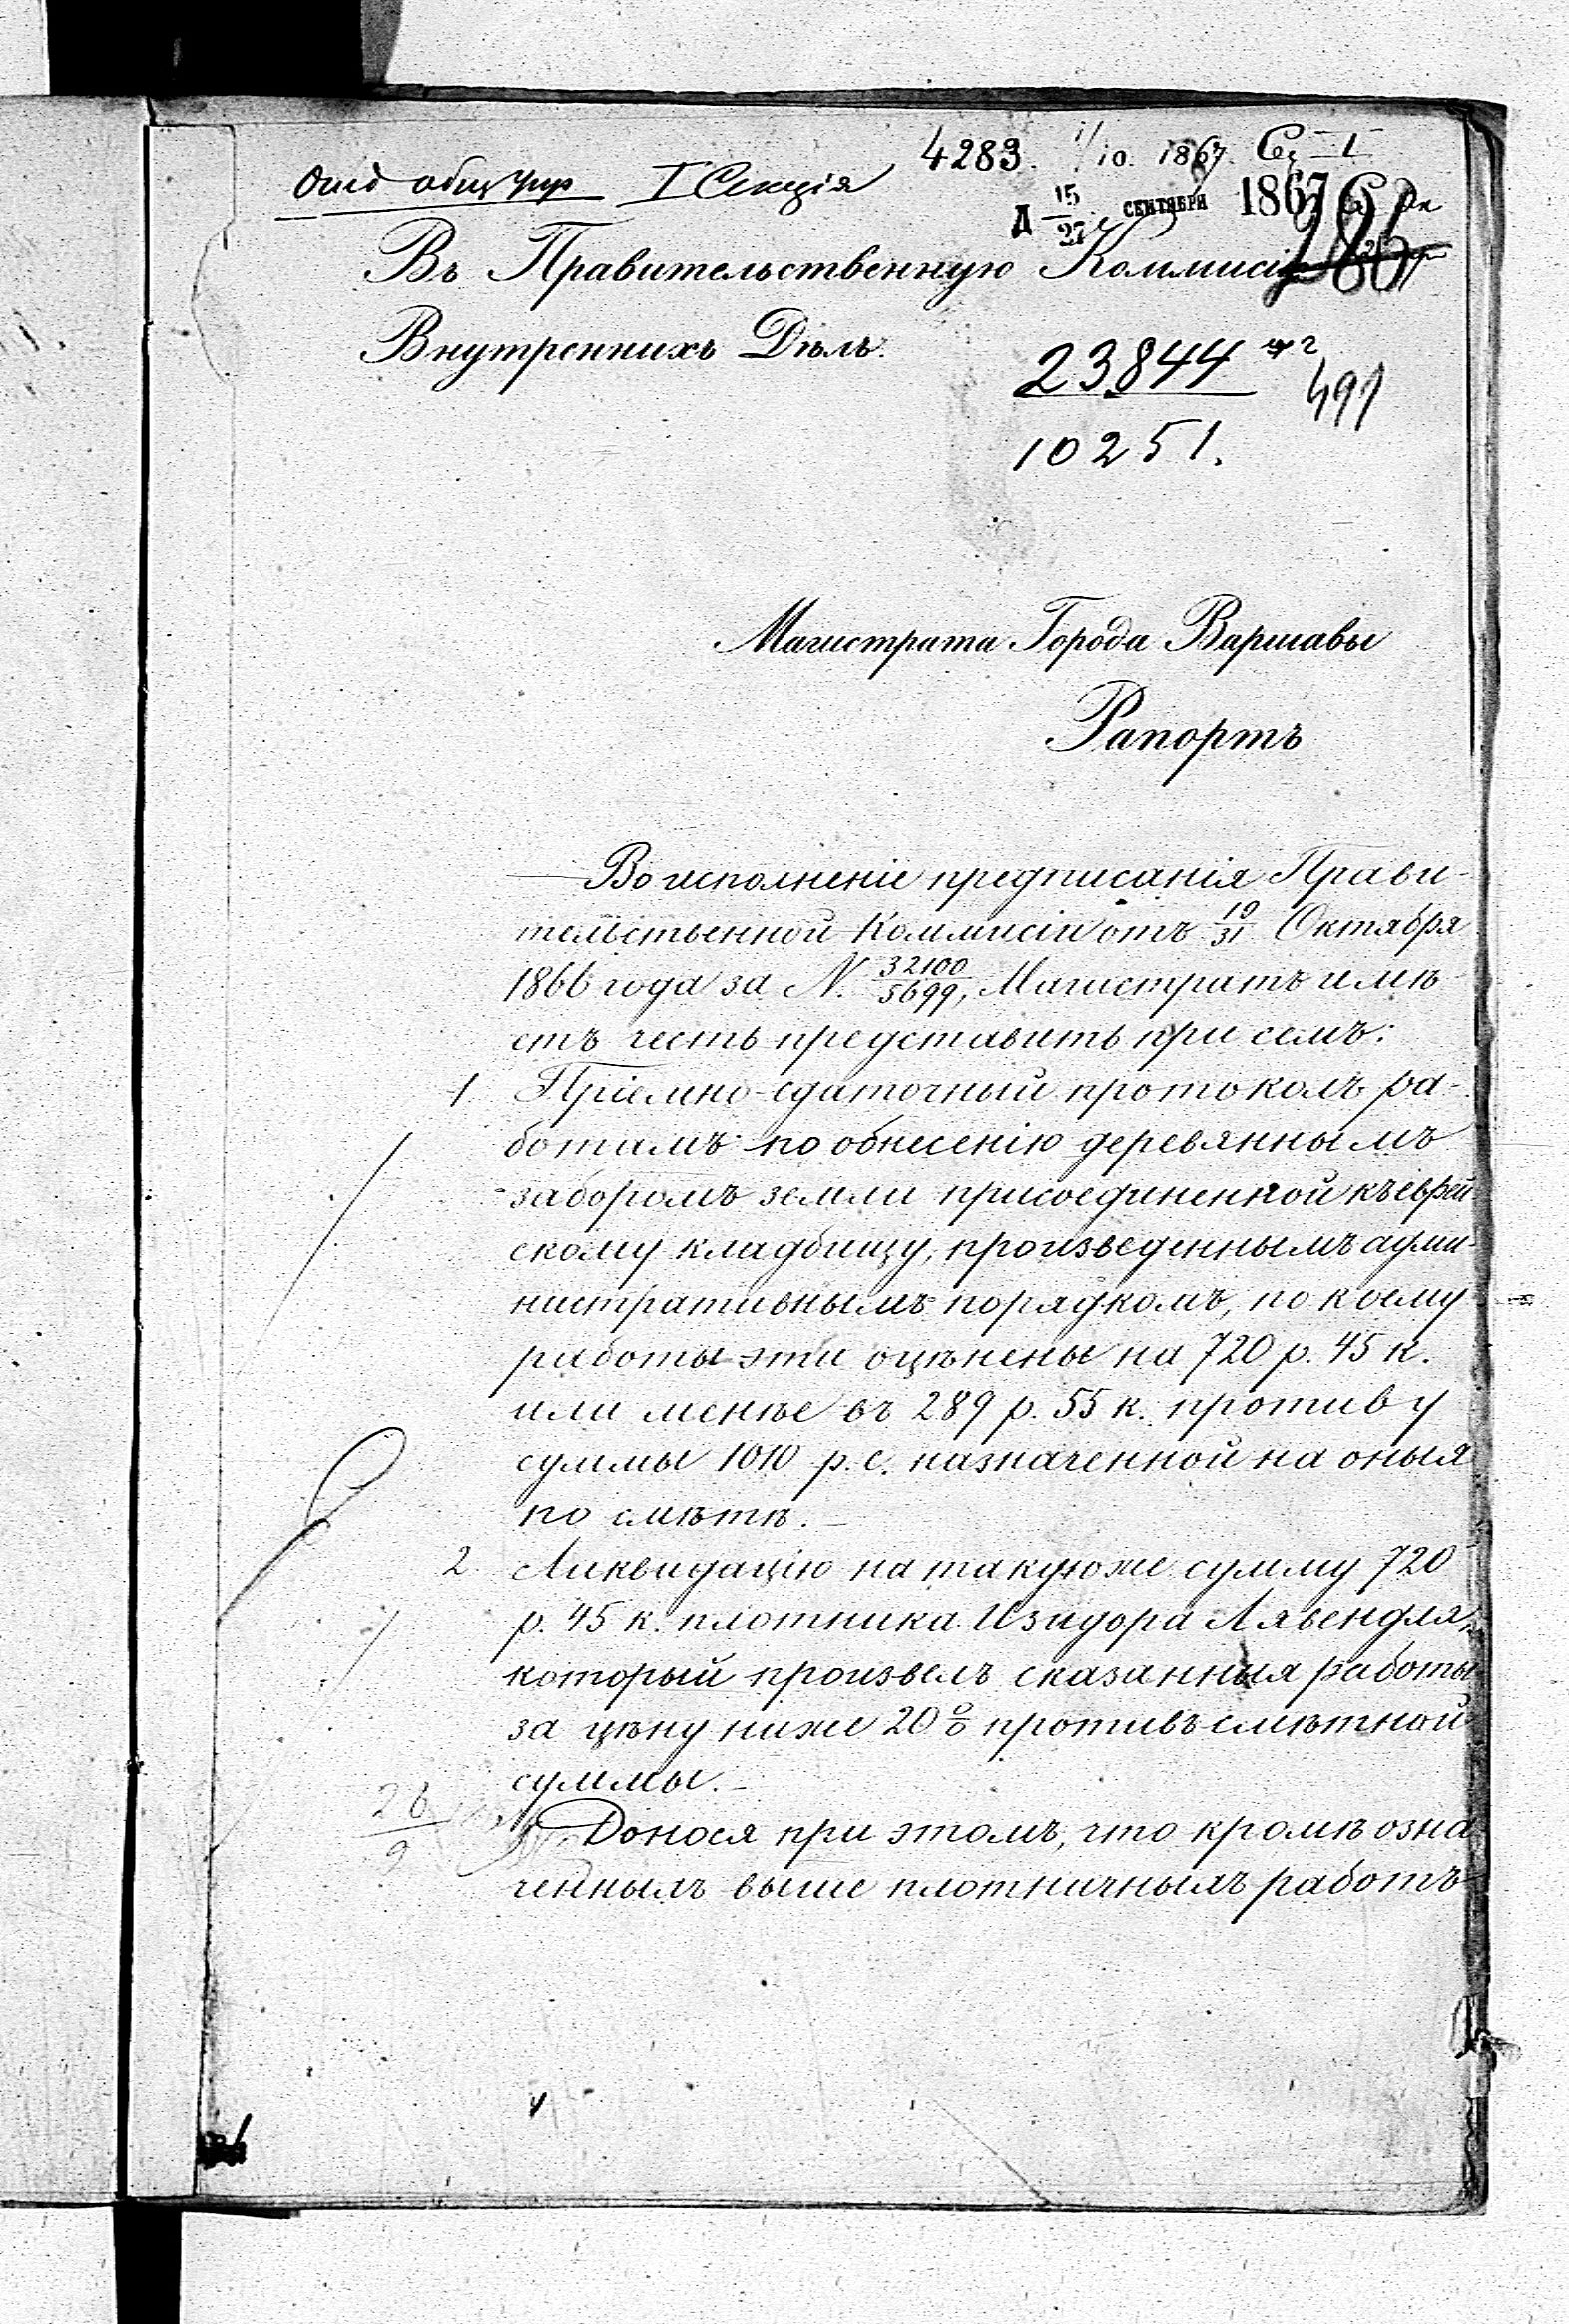 4283. 1/10. 1867. Сек I
Отд общ упр I Секція
Д 15/27 СЕНТЯБРЯ 1867
Въ Правительственную Коммисію
Внутреннихъ Дѣлъ.
23844
491
10251.
Магистрата Города Варшавы
Рапортъ
Во исполненіе предписанія Прави-
тельственной Коммисіи отъ 19/31 Октября
1866 года за N. 32100/5699, Магистратъ имѣ-
етъ честь представить при семъ:
1 Пріемно-сдаточный протоколъ ра-
ботамъ по обнесенію деревяннымъ
заборомъ земли присоединенной къ еврей-
скому кладбищу, произведеннымъ адми-
нистративнымъ порядкомъ, по коему
работы эти оцѣнены на 720 р. 45 к.
или менѣе въ 289 р. 55 к. противу
суммы 1010 р. с. назначенной на оныя
по смѣтѣ.
2 Ликвидацію на такуюже сумму 720
р. 45 к. плотника Изидора Лявендля,
который произвелъ сказанныя работы
за цѣну ниже 20 % противъ смѣтной
суммы.
28/9
Донося при этомъ, что кромѣ озна-
ченныхъ выше плотничныхъ работъ